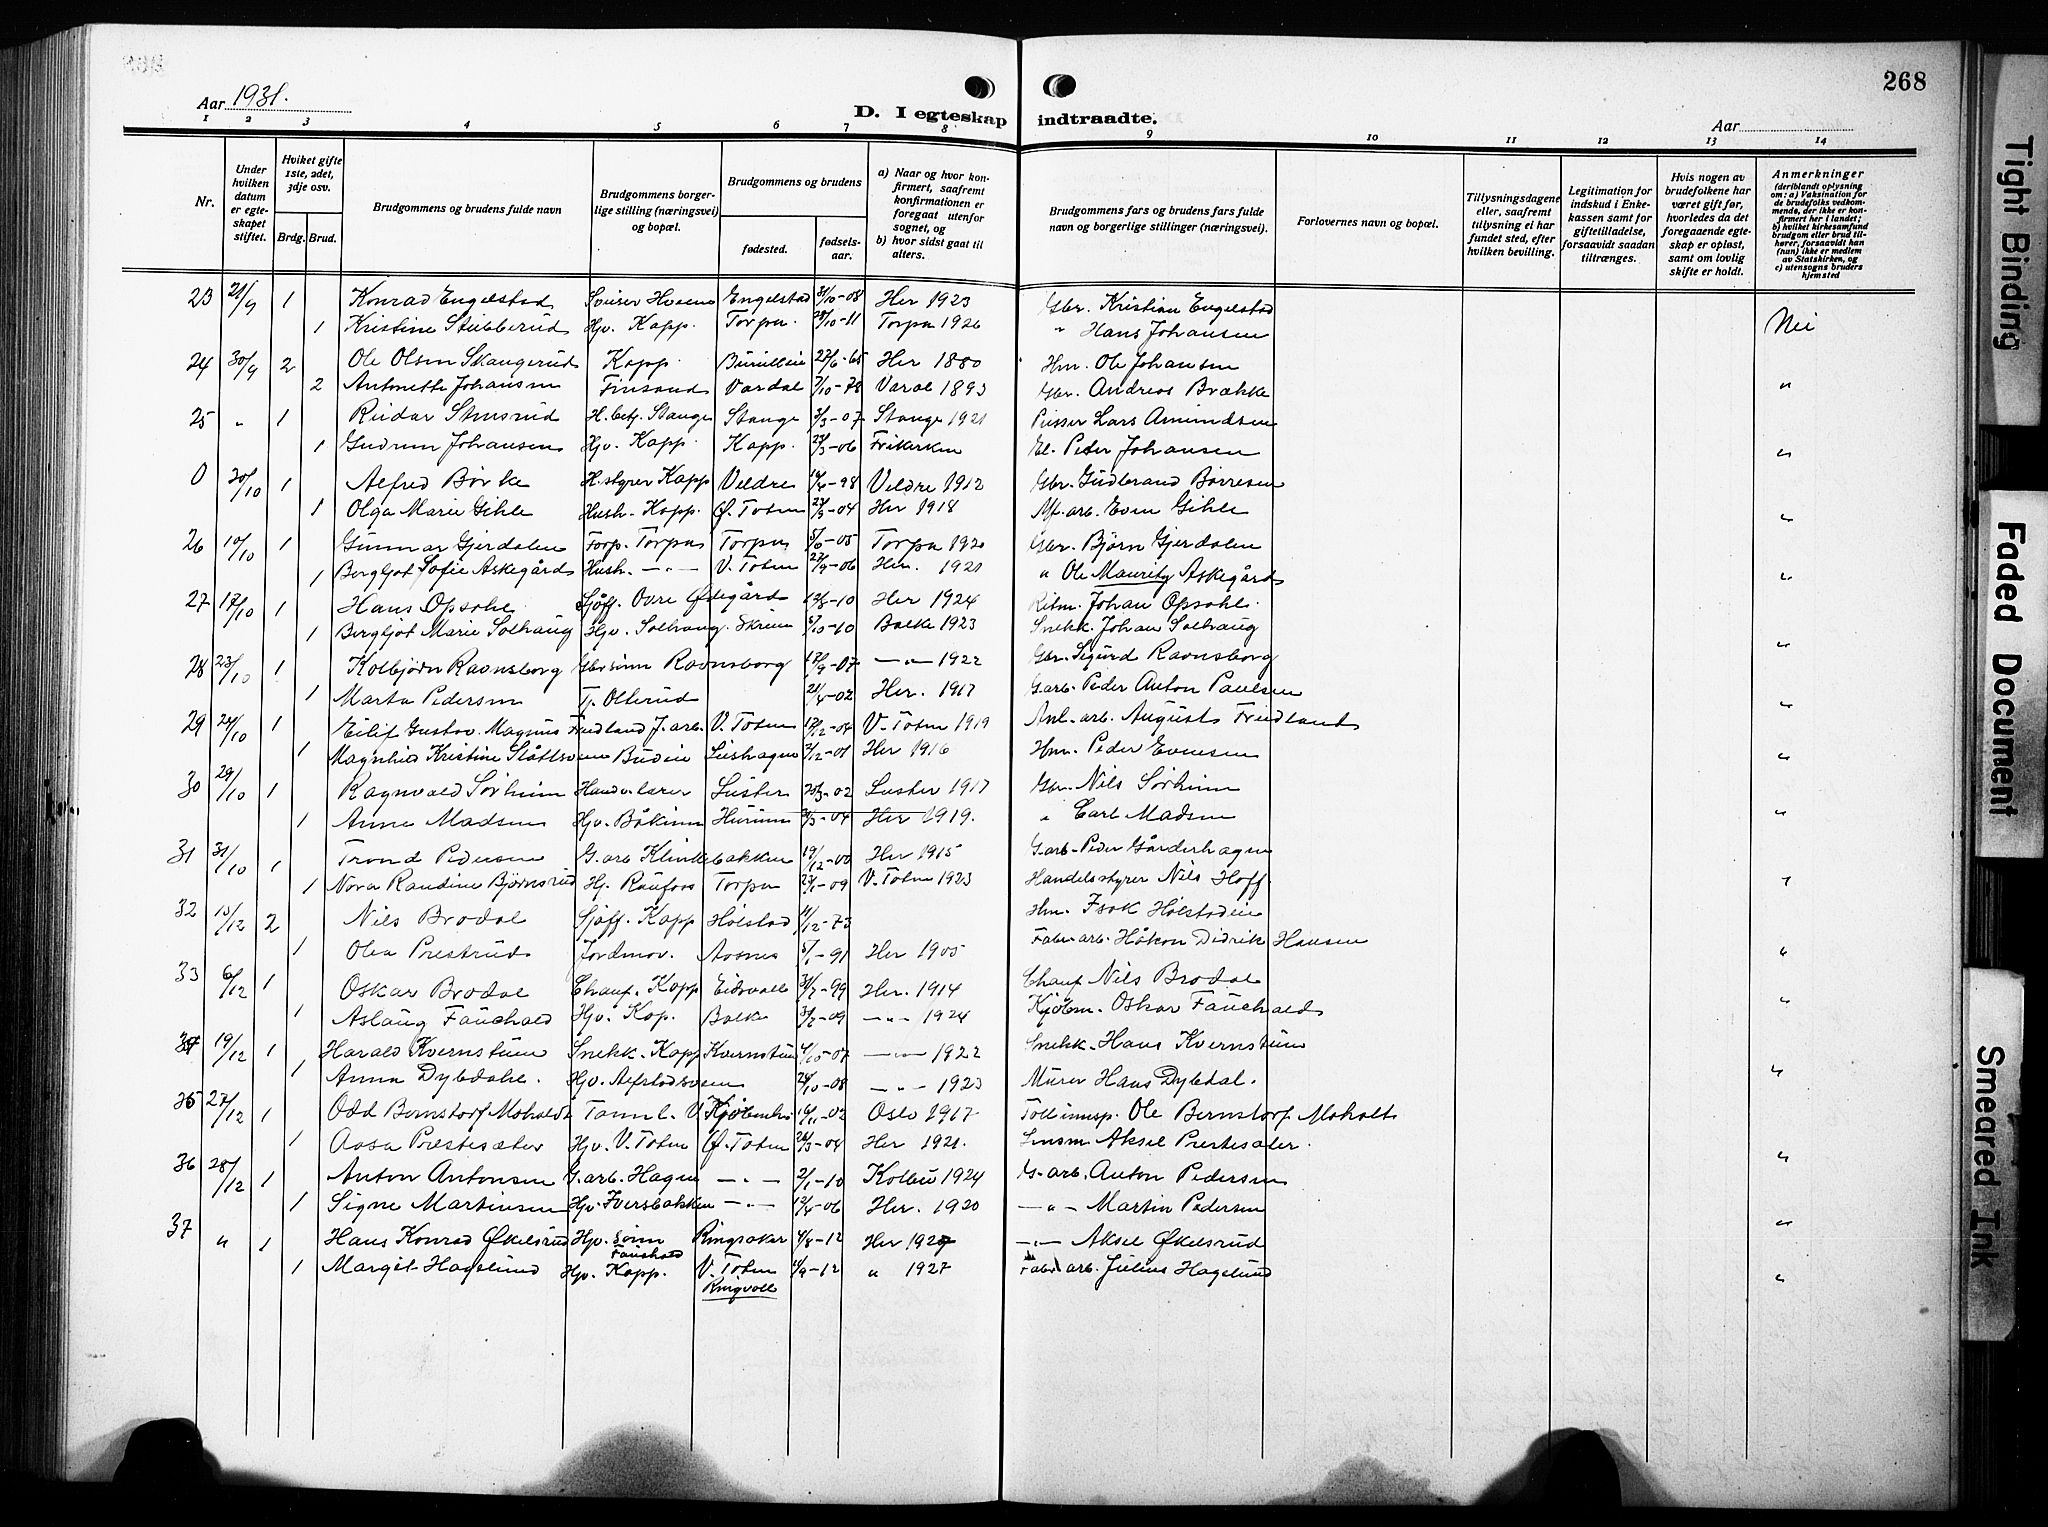 268
Aar 1931.
D. I egteskap indtraadte.
Aar
1 2 3 4 5 6 7 8 9 10 11 12 13 14
Nr.
Under hvilken datum er egteskapet stiftet.
Hvilket gifte 1ste, 2det, 3dje osv.
Brdg. Brud.
Brudgommens og brudens fulde navn
Brudgommens borgerlige stilling (næringsvei) og bopæl.
Brudgommens og brudens
fødested.
fødselsaar.
a) Naar og hvor konfirmert, saafremt konfirmationen er foregaat utenfor sognet, og
b) hvor sidst gaat til alters.
Brudgommens fars og brudens fars fulde navn og borgerlige stillinger (næringsvei).
Forlovernes navn og bopæl.
Tillysningsdagene eller, saafremt tillysning ei har fundet sted, efter hvilken bevilling.
Legitimation for indskud i Enkekassen samt for giftetilladelse, forsaavidt saadan tiltrænges.
Hvis nogen av brudefolkene har været gift før, hvorledes da det foregaaende egteskap er opløst, samt om lovlig skifte er holdt.
Anmerkninger
(deriblandt oplysning om: a) Vaksination for de brudefolks vedkommende, der ikke er konfirmert her i landet; b) hvilket kirkesamfund brudgom eller brud tilhører, forsaavidt han (hun) ikke er medlem av Statskirken, og c) utensogns bruders hjemsted
23 21/9 1 Konrad Engelstad Engelstad 31/10-08 Her 1923 Gbr. Kristian Engelstad
1 Kristine Stubberud Hjv. Kapp. Torpa. 28/10-11 Torpa 1926 " Hans Johansen Nei
24 30/9 2 Ole Olsen Skangerud Kapp. 27/6-65 Her 1880 Hm. Ole Johansen
2 Antonette Johansen Vardal 7/10-78 Vardl 1893 Gbr. Andreas Brække "
25 " 1 Reidar Stensrud H. bet. Stange Stange 3/3-07 Stange 1921 Pusser Lars Amundsen
1 Gudrun Johansen Hjv. Kapp. Kapp. 23/3-06 Frikirken El. Peter Johansen "
0 20/10 1 Alfred Børke H. styrer Kapp Veldre 19/4-98 Veldre 1912 Gbr. Gudbrand Børresen
1 Olga Marie Gihle Hush. Kapp. Ø. Toten 23/3-04 Her 1918 Mf. arb. Even Gihle "
26 10/10 1 Gunnar Gjerdalen Forp. Torpa Torpa 5/6-05 Torpa 1920 Gbr. Bjørn Gjerdalen
1 Bergljot Sofie Askegård Hush. -"- V. Toten 27/9-06 Her. 1921 " Ole Mauritz Askegård "
27 17/10 1 Hans Opsahl Sjåff. Øvre Ødegård 12/8-10 Her 1924 Ritm. Johan Opsahl.
1 Bergljot Marie Solhaug Hjv. Solhaug. Skreia 5/10-10 Balke 1923 Snekk. Johan Solhaug "
28 23/10 1 Kolbjørn Ravnsborg Gbrsønn Ravnsborg 17/9-07 -"- 1922 Gbr. Sigurd Ravnsborg
1 Marta Pedersen Tj. Olterud 21/4-02 Her. 1917 G. arb. Peder Anton Paulsen "
29 24/10 1 Eilif Gustav Magnus Fredlund J. arb. V. Toten 17/12-04 V. Toten 1919 Anl. arb. August Fredlund
1 Magnhild Kristine Slåttsveen Budeie Lieshagen 7/12-01 Her 1916 Hm. Peder Evensen "
30 29/10 1 Ragnvald Sørheim Handv. lærer Luster 20/3-02 Luster 1917 Gbr. Nils Sørheim
1 Anne Madsen Hjv. Båkinn Hurum 31/3-04 Her 1919. " Carl Madsen "
31 31/10 1 Trond Pedersen G. arb. Klinkebakken 19/12-00 Her 1915 G. arb. Peder Gårderhagen
1 Nora Randine Bjørnsrud Hj. Raufoss Torpa 27/1-09 V. Toten 1923 Handelsstyrer Nils Hoff. "
32 15/12 2 Nils Brodal Sjåff. Kapp Holstad 11/12-73 Hm. Isak Holstadeie
1 Olea Prestrud Jordmor. Aasnes 5/1-91 Her 1905 Fabr. arb. Håkon Didrik Hansen "
33 6/12 1 Oskar Brodal Chauf. Kapp Eidsvoll 31/7-99 Her. 1914 Chauf Nils Brodal
1 Aslaug Fauchald Hjv. Kap. Balke 3/2-09 -"- 1924 Kjøbm. Oskar Fauchald "
34 19/12 1 Harald Kvernstuen Snekk. Kapp Kvernstuen 4/10-07 -"- 1922 Snekk. Hans Kvernstuen
1 Anna Dyledahl. Hjv. Alfstadsveen 24/10-08 -"- 1923 Murer Hans Dyledal. "
35 27/12 1 Odd Bernstorf Moholdt Tannl. V. Kjøbenhv 16/11-02 Oslo 1917 Tollinnsp. Ole Bernstorf Moholt
1 Aasa Præstesæter Hjv. V. Toten Ø. Toten 26/3-04 Her 1921. Lensm. Aksel Prestesæter. "
36 28/12 1 Anton Antonsen G. arb. Hagen -"- 2/1-10 Kolbu 1924 G. arb. Anton Pedersen
1 Signe Martinsen Hjv. Iversbakken -"- 13/4-06 Her. 1920 -"- Martin Pedersen "
37 " 1 Hans Konrad Økelsrud Hjv. sønn Fauchald Ringsaker 4/8-12 Her 1927 -"- Aksel Økelsrud
1 Margit Hagelund Hjv. Kapp. V. Toten Ringvoll 4/9-12 " 1927 Fabr. arb. Julius Hagelund "
Tight Binding
Faded Document
Smeared Ink